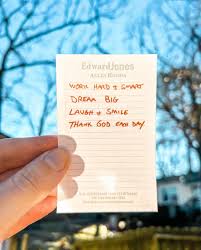 Edward Jones
WORK HARD & SMART
DREAM BIG
LAUGH & SMILE
THANK GOD EACH DAY